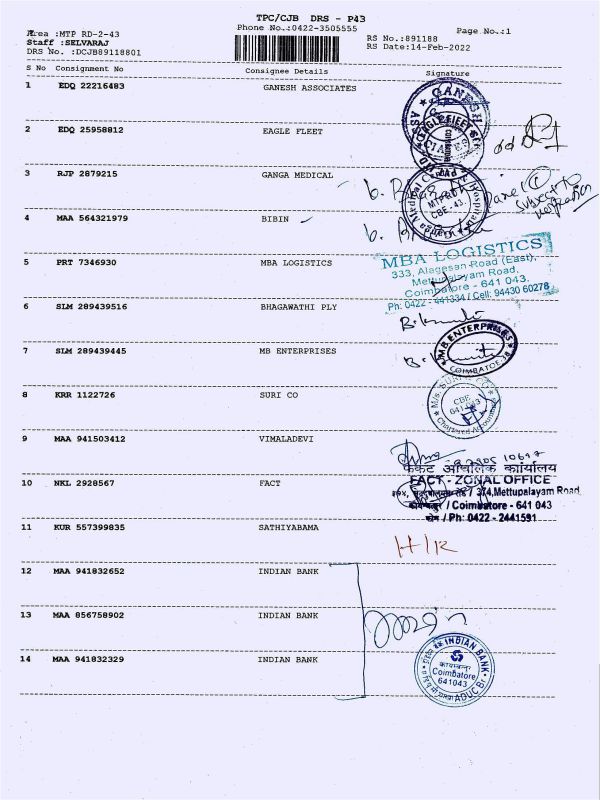 TPC/CJB DRS - P43
Area :MTP RD-2-43
Phone No.:0422-3505555
Page No.:1
Staff :SELVARAJ
RS No.:891188
DRS No. :DCJB89118801
RS Date:14-Feb-2022
S No Consignment No Consignee Details Signature
1 EDQ 22216483 GANESH ASSOCIATES
2 EDQ 25958812 EAGLE FLEET
3 RJP 2879215 GANGA MEDICAL
MTP RD
CBE-43
4 MAA 564321979 BIBIN
5 PRT 7346930 MBA LOGISTICS
MBA LOGISTICS
333, Alagesan Road (East),
Mettupalayam Road,
Coimbatore - 641 043.
Ph: 0422 - 441334 / Cell: 94430 60278
6 SLM 289439516 BHAGAWATHI PLY
7 SLM 289439445 MB ENTERPRISES
MB ENTERPRISES
8 KRR 1122726 SURI CO
CBE
641 043
Chartered Accountants
9 MAA 941503412 VIMALADEVI
10 NKL 2928567 FACT
फैक्ट आंचलिक कार्यालय
FACT - ZONAL OFFICE
/ 374, Mettupalayam Road
/ Coimbatore - 641 043
फोन / Ph: 0422 - 2441591
11 KUR 557399835 SATHIYABAMA
H/R
12 MAA 941832652 INDIAN BANK
13 MAA 856758902 INDIAN BANK
14 MAA 941832329 INDIAN BANK
INDIAN BANK
Coimbatore
641043
ADUC Br.